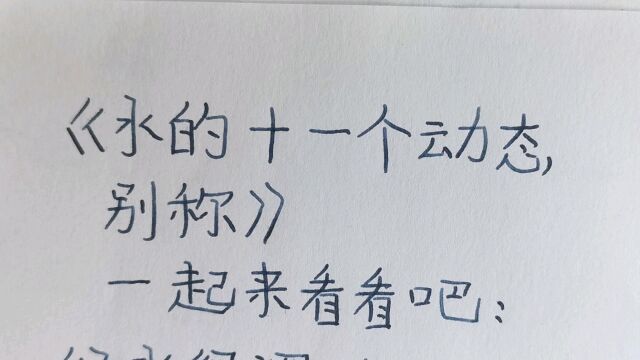 《水的十一个动态,
别称》
一起来看看吧: